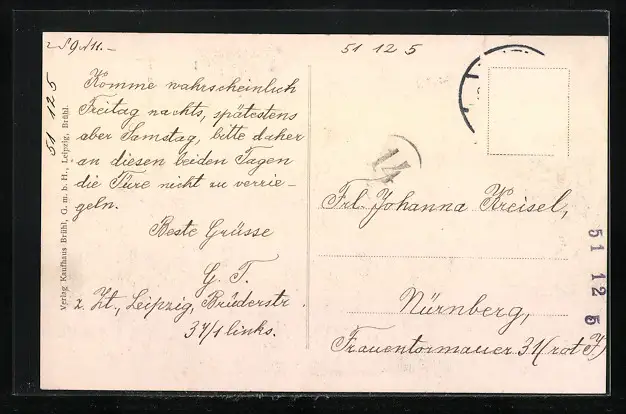 51 12 5
Komme wahrscheinlich
Freitag nachts, spätestens
aber Samstag, bitte daher
an diesen beiden Tagen
die Türe nicht zu verrie-
geln.
Beste Grüsse
G. T.
z. Zt., Leipzig, Brüderstr.
37/1 links.
51 12 5
Verlag Kaufhaus Brühl, G. m. b. H., Leipzig, Brühl.
14
Frl. Johanna Kreisel,
Nürnberg,
Frauentormauer 31 (rot J.)
51 12 5